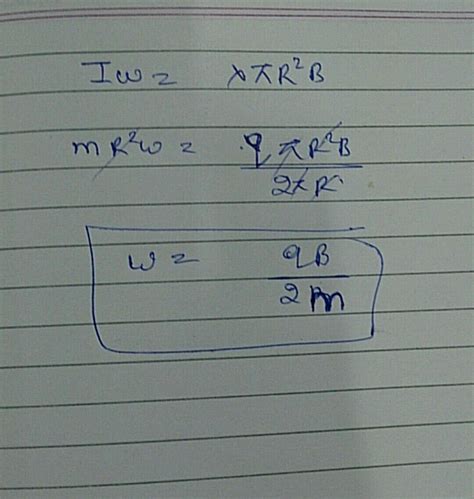 Iω = λπR²B
mR²ω = qπR²B / 2πR
ω = qB / 2m